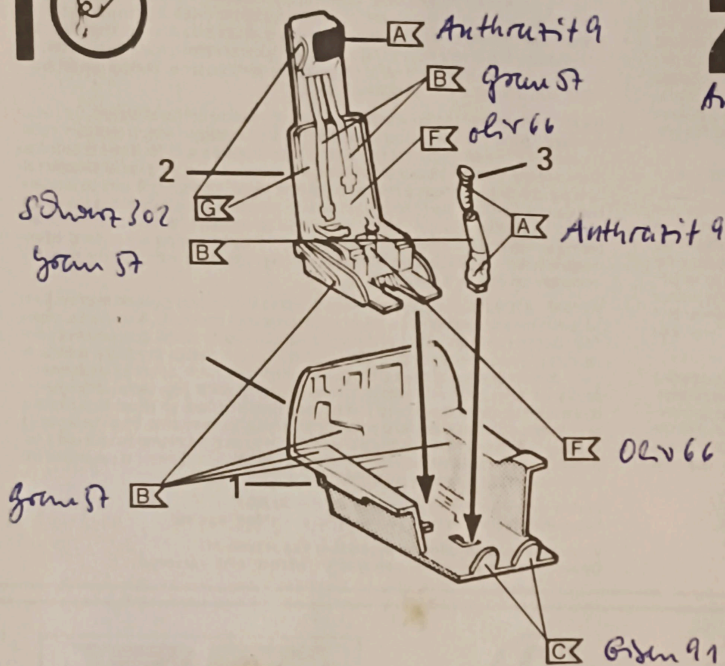 A Anthrazit 9
B grau 57
F oliv 66
2
3
Schwarz 302 G
A Anthrazit 9
grau 57 B
F Oliv 66
grau 57 B 1
C Eisen 91